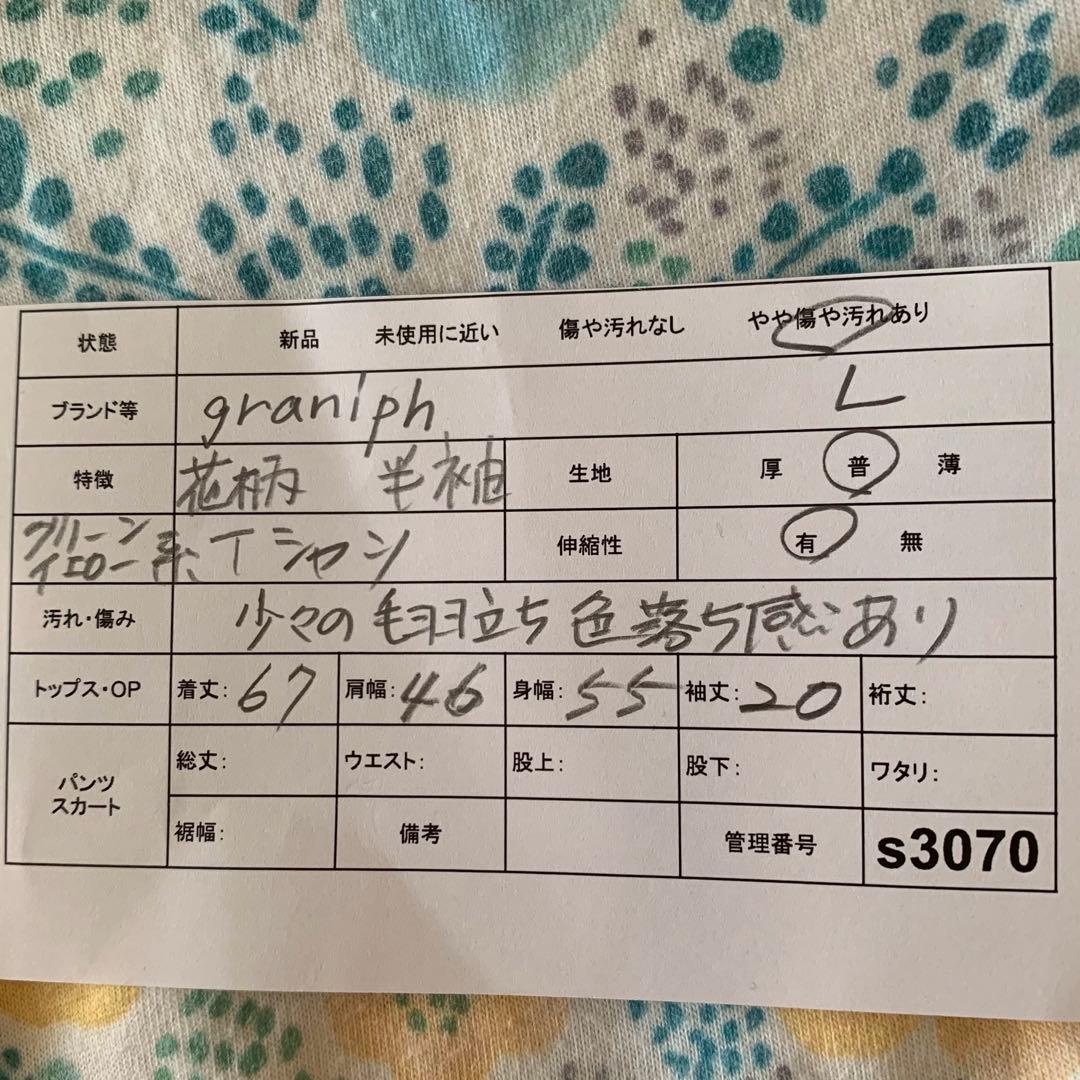 状態 新品 未使用に近い 傷や汚れなし やや傷や汚れあり
ブランド等 graniph L
特徴 花柄 半袖 生地 厚 普 薄
グリーン
イエロー系 Tシャツ 伸縮性 有 無
汚れ・傷み 少々の毛羽立ち 色落ち感あり
トップス・OP 着丈: 67 肩幅: 46 身幅: 55 袖丈: 20 裄丈:
パンツ 総丈: ウエスト: 股上: 股下: ワタリ:
スカート
裾幅: 備考 管理番号 s3070